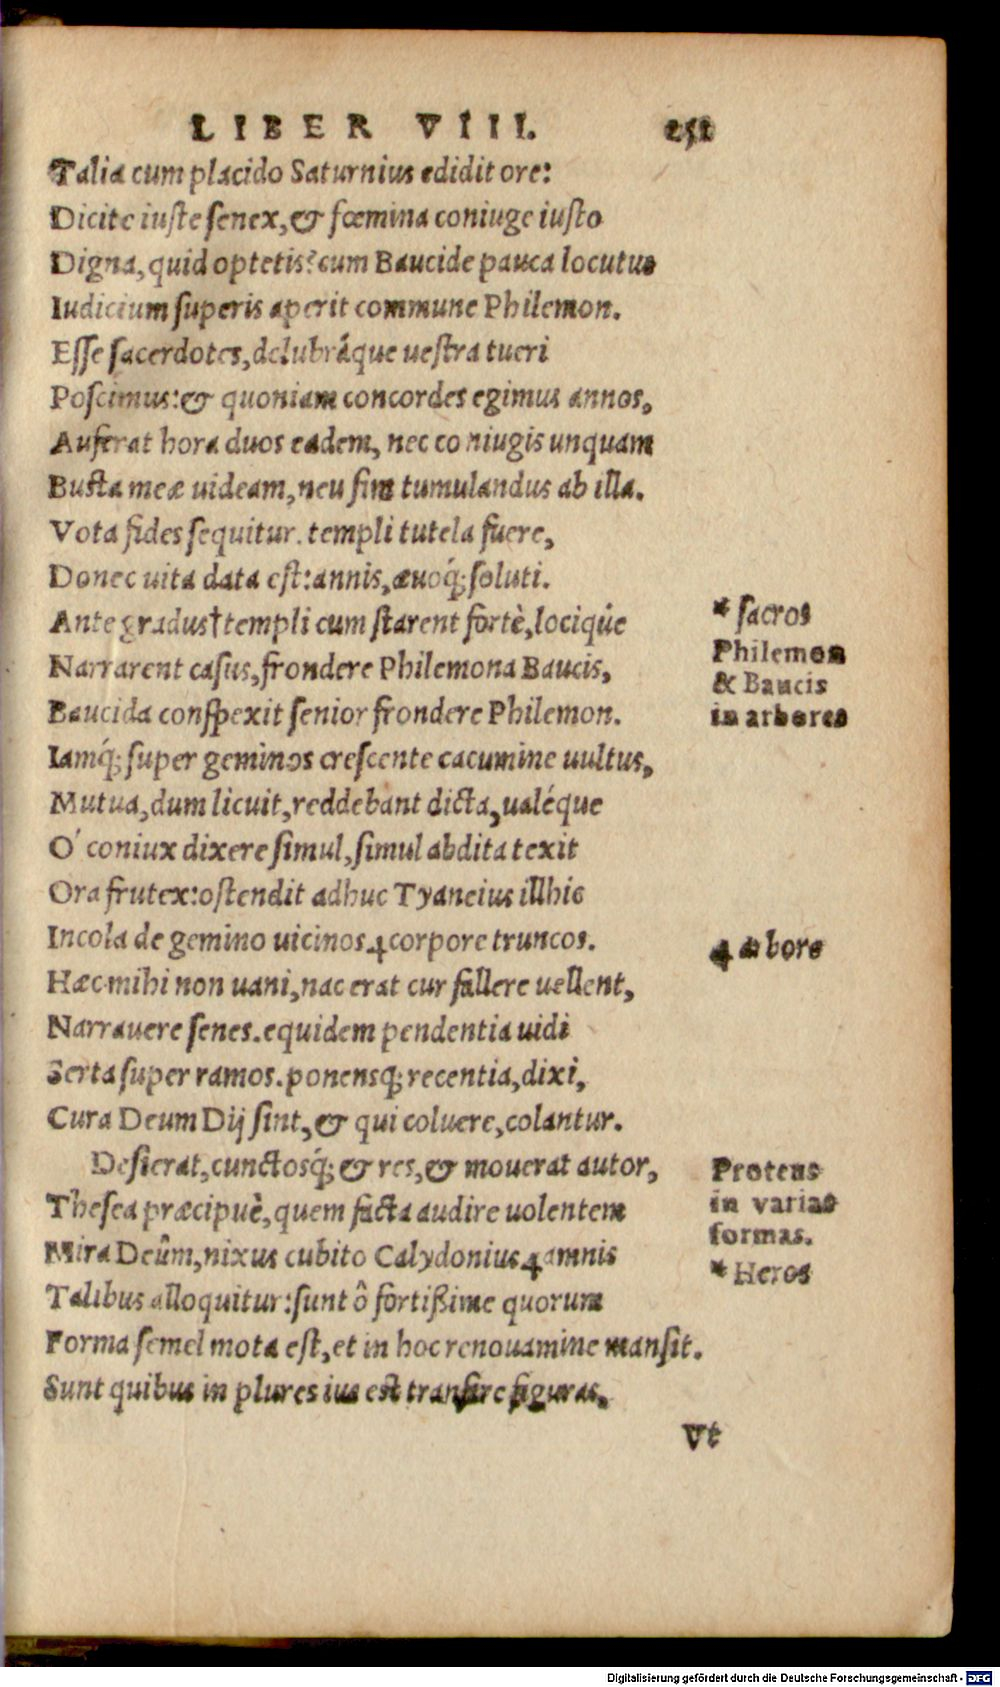 LIBER VIII. 251
Talia cum placido Saturnius edidit ore:
Dicite iuste senex, & fœmina coniuge iusto
Digna, quid optetis? cum Baucide pauca locutus
Iudicium superis aperit commune Philemon.
Esse sacerdotes, delubráque uestra tueri
Poscimus: & quoniam concordes egimus annos,
Auferat hora duos eadem, nec coniugis unquam
Busta meæ uideam, neu sim tumulandus ab illa.
Vota fides sequitur. templi tutela fuere,
Donec uita data est: annis, æuoq́; soluti.
Ante gradus† templi cum starent fortè, lociqúe
* sacros
Narrarent casus, frondere Philemona Baucis,
Baucida conspexit senior frondere Philemon.
Philemon
& Baucis
in arbores
Iamq́; super geminos crescente cacumine uultus,
Mutua, dum licuit, reddebant dicta, ualéque
O´ coniux dixere simul, simul abdita texit
Ora frutex: ostendit adhuc Tyaneius illhic
Incola de gemino uicinos ɥ corpore truncos.
ɥ arbore
Hæc mihi non uani, nac erat cur fallere uellent,
Narrauere senes. equidem pendentia uidi
Serta super ramos. ponensq; recentia, dixi,
Cura Deum Dij sint, & qui coluere, colantur.
Desierat, cunctosq́; & res, & mouerat autor,
Thesea præcipuè, quem facta audire uolentem
Mira Deûm, nixus cubito Calydonius ɥ amnis
Proteus
in varias
formas.
* Heros
Talibus alloquitur: sunt ô fortißime quorum
Forma semel mota est, et in hoc renouamine mansit.
Sunt quibus in plures ius est transire figuras,
Vt
Digitalisierung gefördert durch die Deutsche Forschungsgemeinschaft - DFG